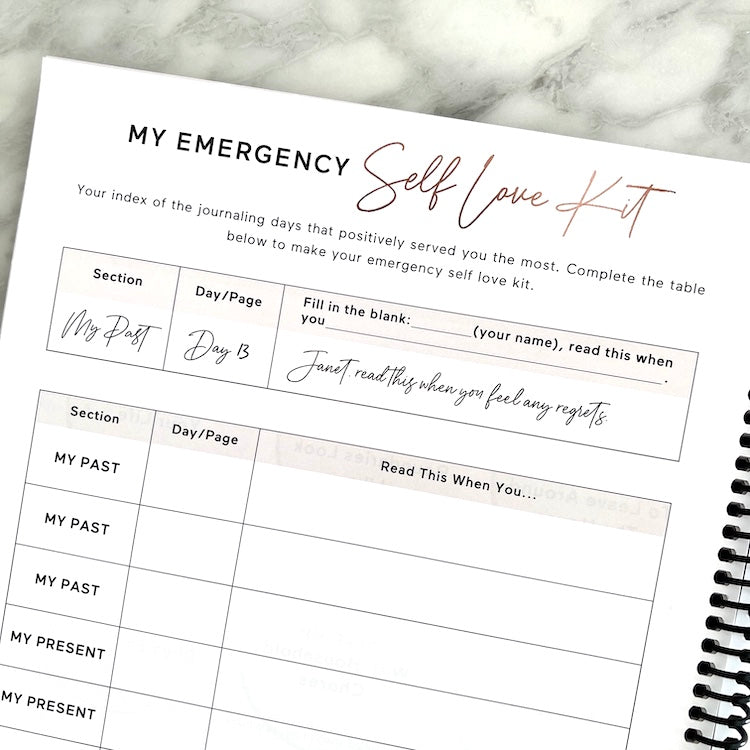 MY EMERGENCY Self Love Kit
Your index of the journaling days that positively served you the most. Complete the table
below to make your emergency self love kit.
Section Day/Page Fill in the blank:________ (your name), read this when
you________________________________.
My Past Day 13 Janet, read this when you feel any regrets.
Section Day/Page Read This When You...
MY PAST
MY PAST
MY PAST
MY PRESENT
MY PRESENT